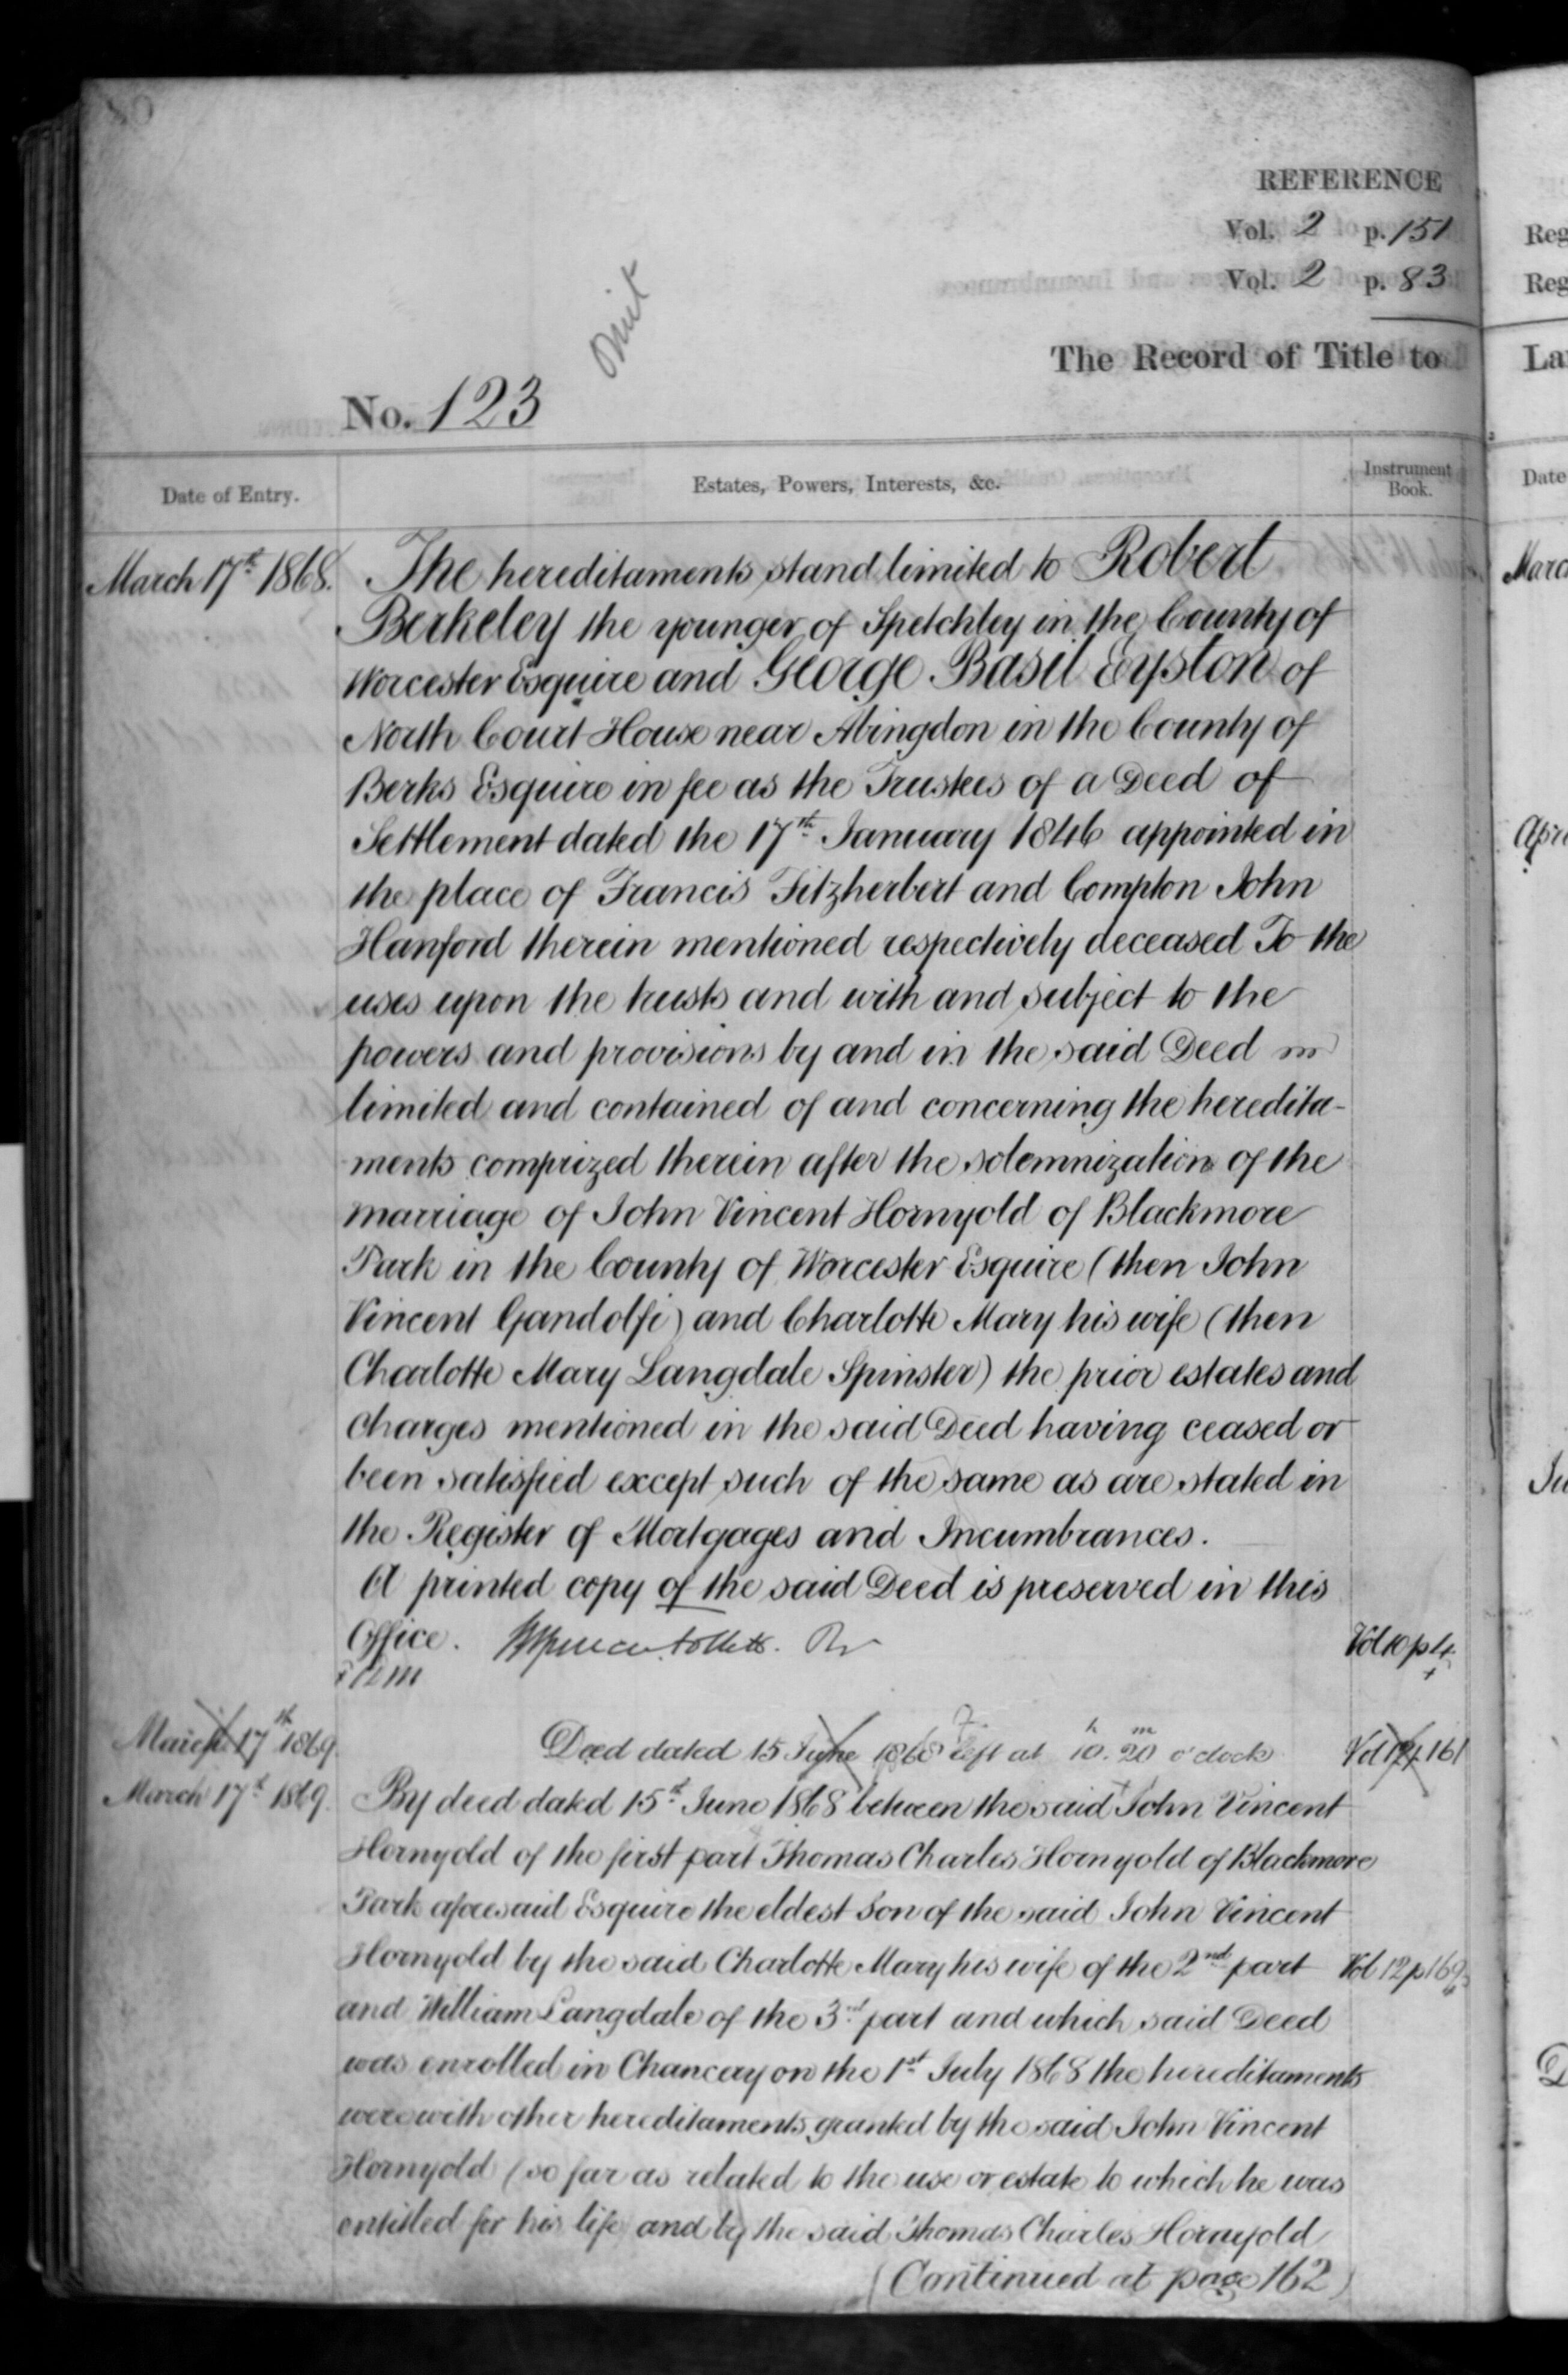 80
REFERENCE
Vol. 2 p. 151
Vol. 2 p. 83
Omit
The Record of Title to
No. 123
Date of Entry.
Estates, Powers, Interests, &c.
Instrument Book.
March 17th 1868. The hereditaments stand limited to Robert
Berkeley the younger of Spetchley in the County of
Worcester Esquire and George Basil Eyston of
North Court House near Abingdon in the County of
Berks Esquire in fee as the Trustees of a Deed of
Settlement dated the 17th January 1846 appointed in
the place of Francis Fitzherbert and Compton John
Hanford therein mentioned respectively deceased To the
uses upon the trusts and with and subject to the
powers and provisions by and in the said Deed
limited and contained of and concerning the heredita-
ments comprized therein after the solemnization of the
marriage of John Vincent Hornyold of Blackmore
Park in the County of Worcester Esquire (then John
Vincent Gandolfi) and Charlotte Mary his wife (then
Charlotte Mary Langdale Spinster) the prior estates and
charges mentioned in the said Deed having ceased or
been satisfied except such of the same as are stated in
the Register of Mortgages and Incumbrances.
A printed copy of the said Deed is preserved in this
Office. Vol 10 p 4
March 17th 1869. Deed dated 15 June 1868 left at 10h. 20m o'clock Vol 12 p. 161
March 17th 1869. By deed dated 15th June 1868 between the said John Vincent
Hornyold of the first part Thomas Charles Hornyold of Blackmore
Park aforesaid Esquire the eldest Son of the said John Vincent
Hornyold by the said Charlotte Mary his wife of the 2nd part Vol 12 p 169
and William Langdale of the 3rd part and which said Deed
was enrolled in Chancery on the 1st July 1868 the hereditaments
were with other hereditaments granted by the said John Vincent
Hornyold (so far as related to the use or estate to which he was
entitled for his life and by the said Thomas Charles Hornyold
(Continued at page 162)
Reg
Reg
La
Date
Marc
Apri
Ju
D